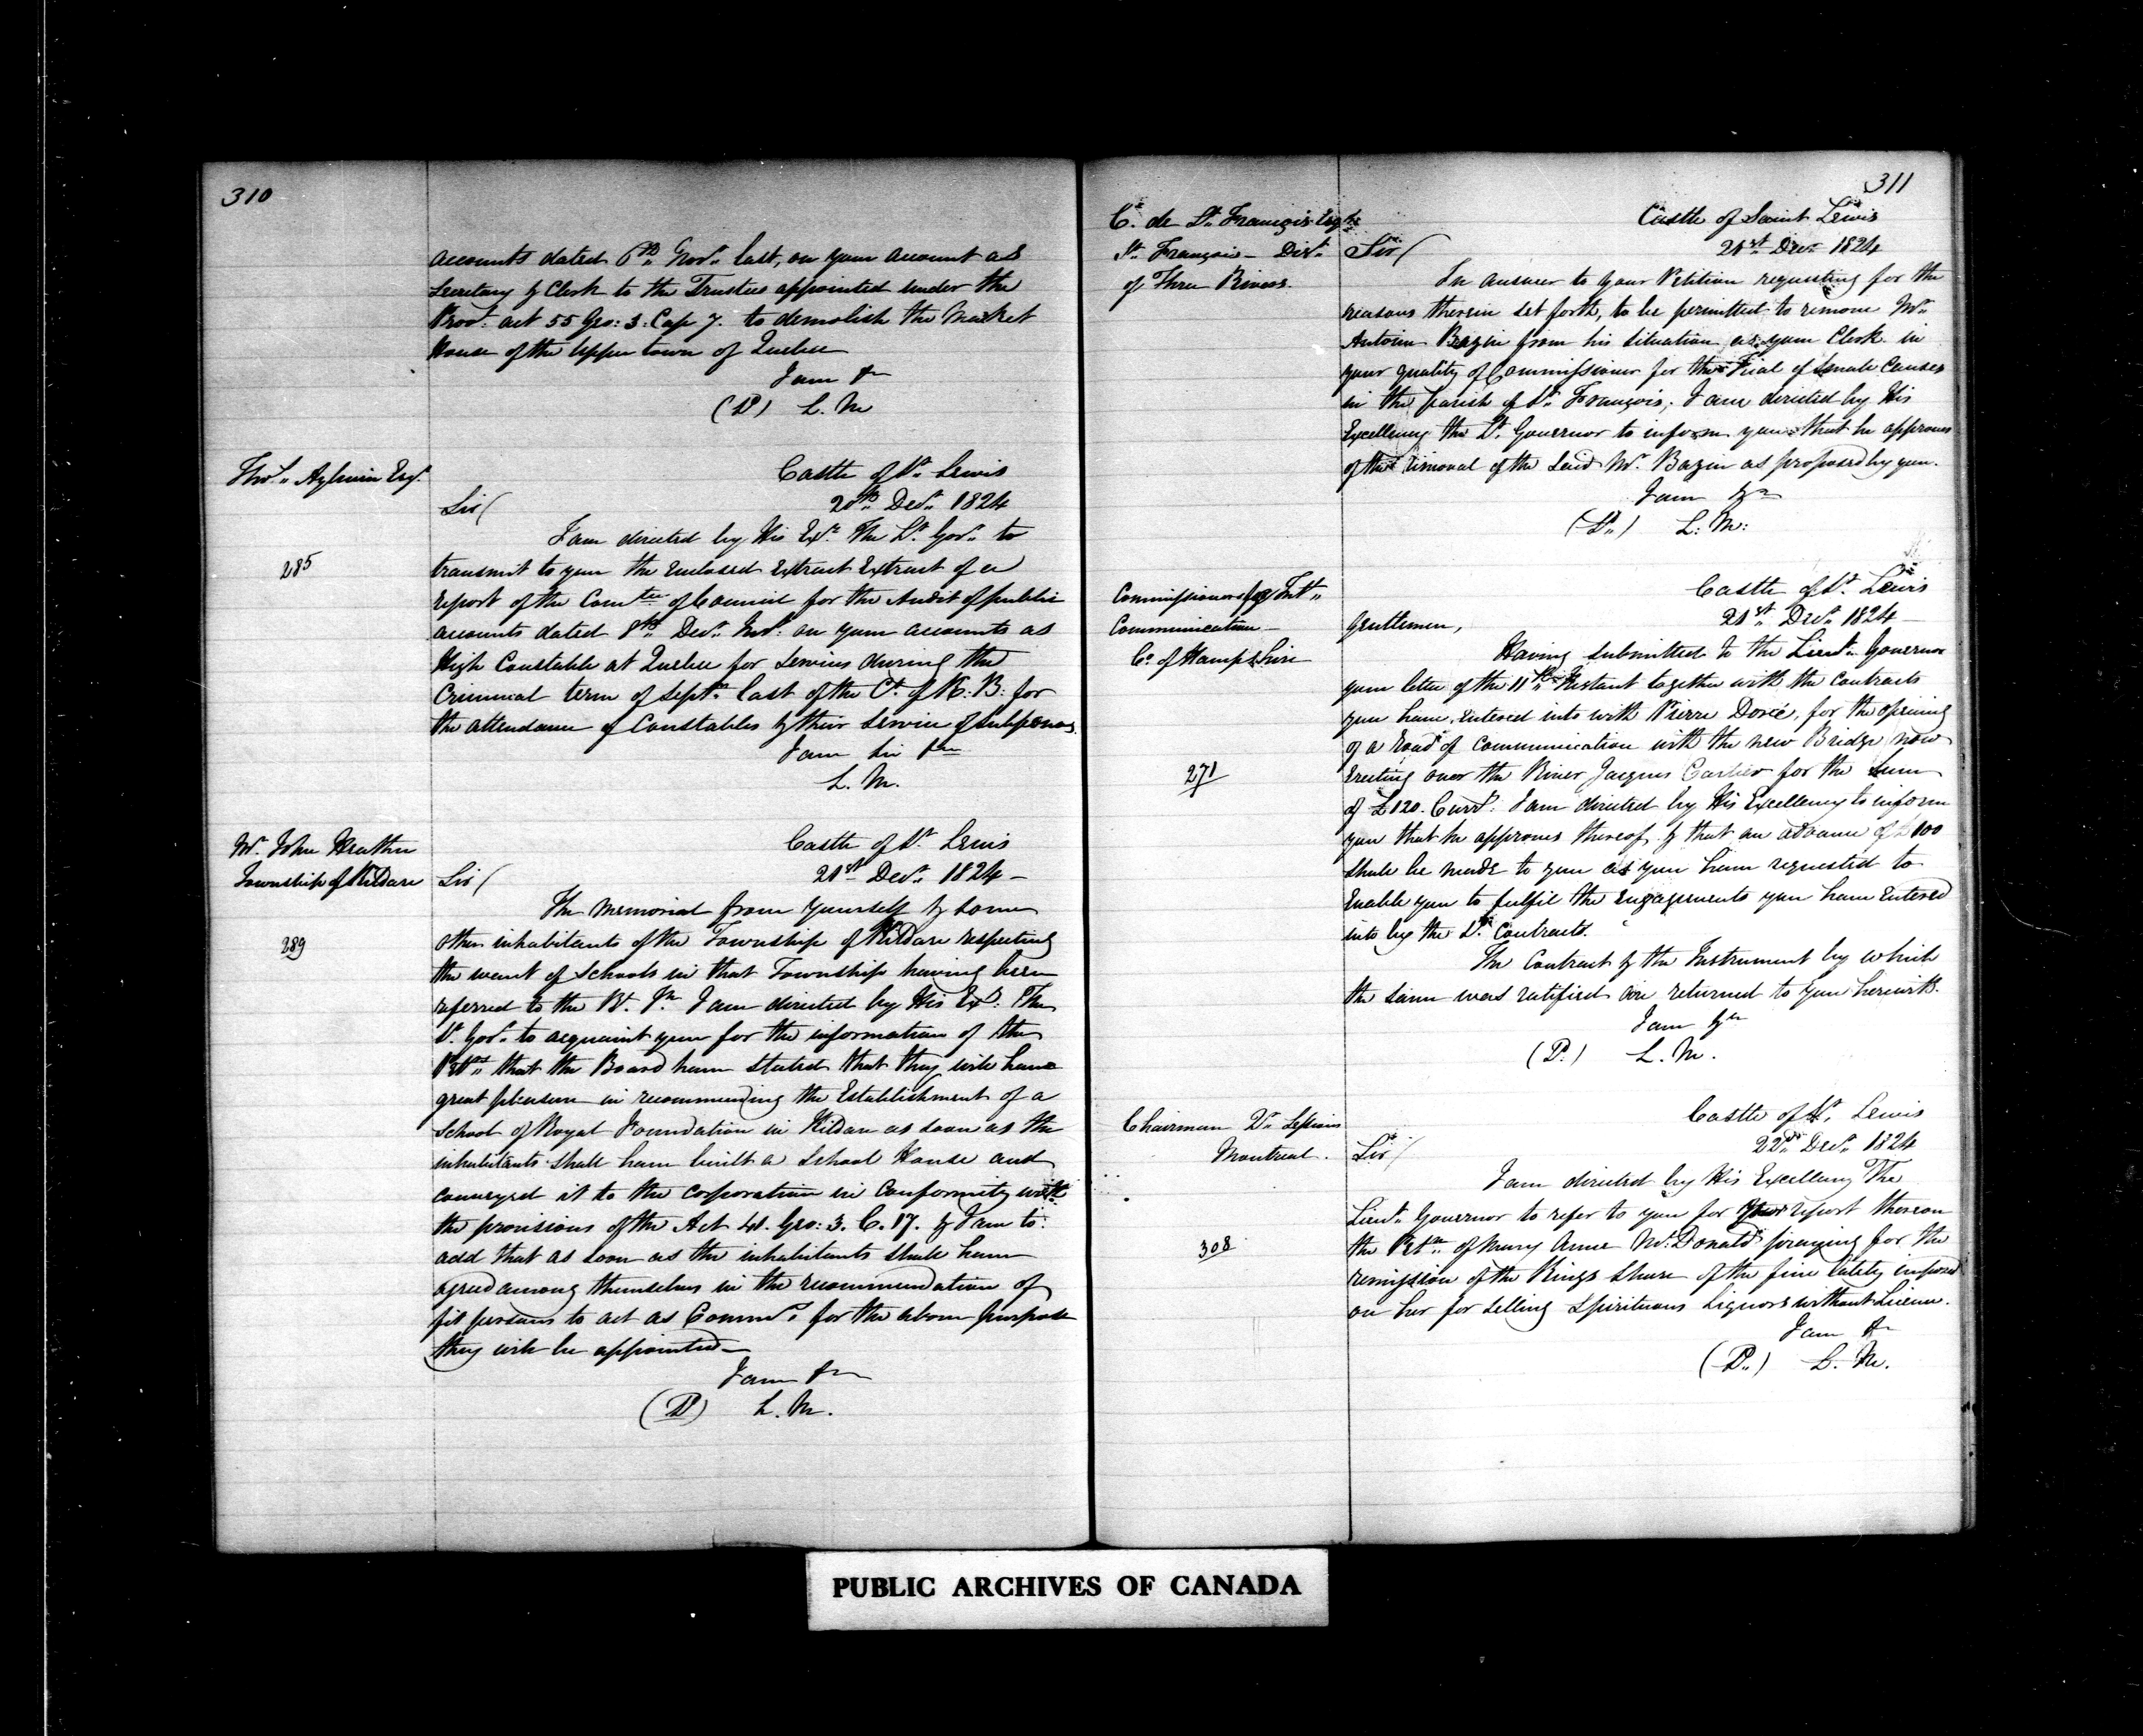 310
accounts dated 6th Novr. last, on your account as
Secretary & Clerk to the Trustees appointed under the
Provl. act 55 Geo: 3. Cap 7. to demolish the Market
House of the Upper town of Quebec
I am &c
(S) L. M
Thos. Aylwin Esqr.
Castle of St. Lewis
20th Decr. 1824
Sir
285
I am directed by His Exy. The Lt. Govr. to
transmit to you the Enclosed Extract Extract of a
report of the Comtee of Council for the Audit of public
accounts dated 8th Decr. Inst. on your accounts as
High Constable at Quebec for Services during the
Criminal term of Septr. last of the Ct. of K. B. for
the attendance of Constables & their Service of Subpœnas.
I am Sir &c
L. M.
Mr. John
Township of Kildare
Castle of St. Lewis
21st Decr. 1824 –
Sir
289
The Memorial from Yourself & some
other inhabitants of the Township of Kildare respecting
the want of Schools in that Township having been
referred to the I am directed by His Exy. The
Lt. Govr. to acquaint you for the information of the
Petrs. that the Board have stated that they will have
great pleasure in recommending the Establishment of a
School of Royal Foundation in Kildare as soon as the
inhabitants shall have built a School House and
conveyed it to the Corporation in Conformity with
the provisions of the Act 41. Geo: 3. C. 17. & I am to
add that as soon as the inhabitants shall have
agreed among themselves in the recommendation of
fit persons to act as Commrs. for the above purpose
they will be appointed –
I am &c
(S) L. M.
311
C. de St. François Esqre
St. François – Dist.
of Three Rivers.
Castle of Saint Lewis
21st Decr. 1824
Sir
In answer to your Petition requesting for the
reasons therein set forth, to be permitted to remove Mr.
Antoine Bazin from his situation as your Clerk in
your quality of Commissioner for the Trial of Small Causes
in the parish of St. François; I am directed by His
Excellency the Lt. Governor to inform you that he approves
of the removal of the Said Mr. Bazin as proposed by you.
I am &c
(S.) L: M:
Commissioners for Intl.
Communication –
Co. of Hampshire
Castle of St. Lewis
21st Decr. 1824 –
Gentlemen,
271
Having submitted to the Lieut. Governor
your letter of the 11th Instant together with the Contracts
you have entered into with Pierre Doré, for the opening
of a road of Communication with the new Bridge now
Erecting over the River Jacques Cartier for the Sum
of £120. Curry. I am directed by His Excellency to inform
you that he approves thereof, & that an advance of £100
shall be made to you as you have requested to
Enable you to fulfil the Engagements you have Entered
into by the Sd. Contracts.
The Contract & the Instrument by which
the same was ratified are returned to you herewith.
I am &c
(S.) L. M.
Chairman Qr. Sessions
Montreal.
Castle of St. Lewis
22nd Decr. 1824
Sir
308
I am directed by His Excellency The
Lieut. Governor to refer to you for Your report thereon
the Petn. of Mary Anne McDonald praying for the
remission of the Kings Share of the fine lately imposed
on her for Selling Spirituous Liquors without Licence.
I am &c
(S.) L. M.
PUBLIC ARCHIVES OF CANADA